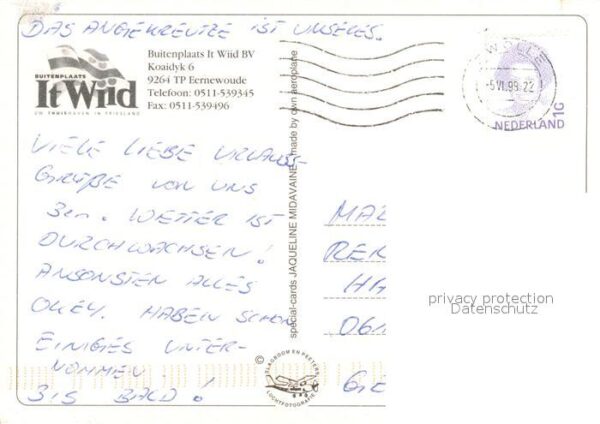 DAS ANGEKREUZTE IST UNSERES.
BUITENPLAATS
It Wiid
UW THUISHAVEN IN FRIESLAND
Buitenplaats It Wiid BV
Koaidyk 6
9264 TP Eernewoude
Telefoon: 0511-539345
Fax: 0511-539496
ZWOLLE
-5.VI.99.22
NEDERLAND
1G
VIELE LIEBE URLAUBS-
GRÜßE VON UNS
3en. WETTER IST
DURCHWACHSEN!
ANSONSTEN ALLES
OKEY. HABEN SCHON
EINIGES UNTER-
NOMMEN.
BIS BALD!
special-cards JAQUELINE MIDAVAINE made by own aeroplane
©
SLAGBOOM EN PEETERS
LUCHTFOTOGRAFIE
HA
06
GE
privacy protection
Datenschutz